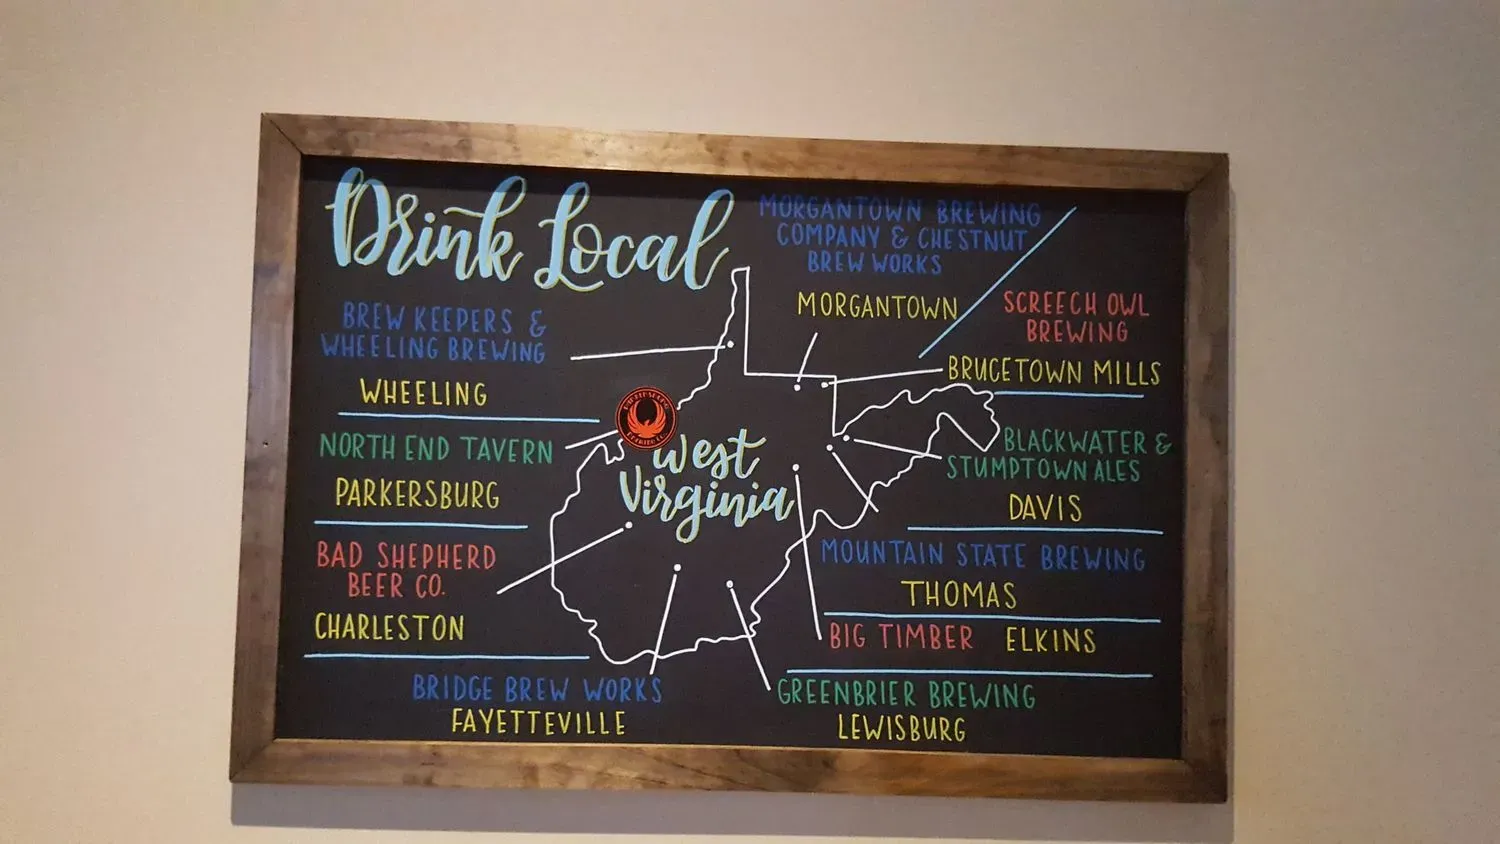 Drink Local
MORGANTOWN BREWING
COMPANY & CHESTNUT
BREW WORKS
MORGANTOWN
SCREECH OWL
BREWING
BRUCETOWN MILLS
BREW KEEPERS &
WHEELING BREWING
WHEELING
NORTH END TAVERN
PARKERSBURG
West
Virginia
BLACKWATER &
STUMPTOWN ALES
DAVIS
BAD SHEPHERD
BEER CO.
CHARLESTON
MOUNTAIN STATE BREWING
THOMAS
BIG TIMBER ELKINS
BRIDGE BREW WORKS
FAYETTEVILLE
GREENBRIER BREWING
LEWISBURG